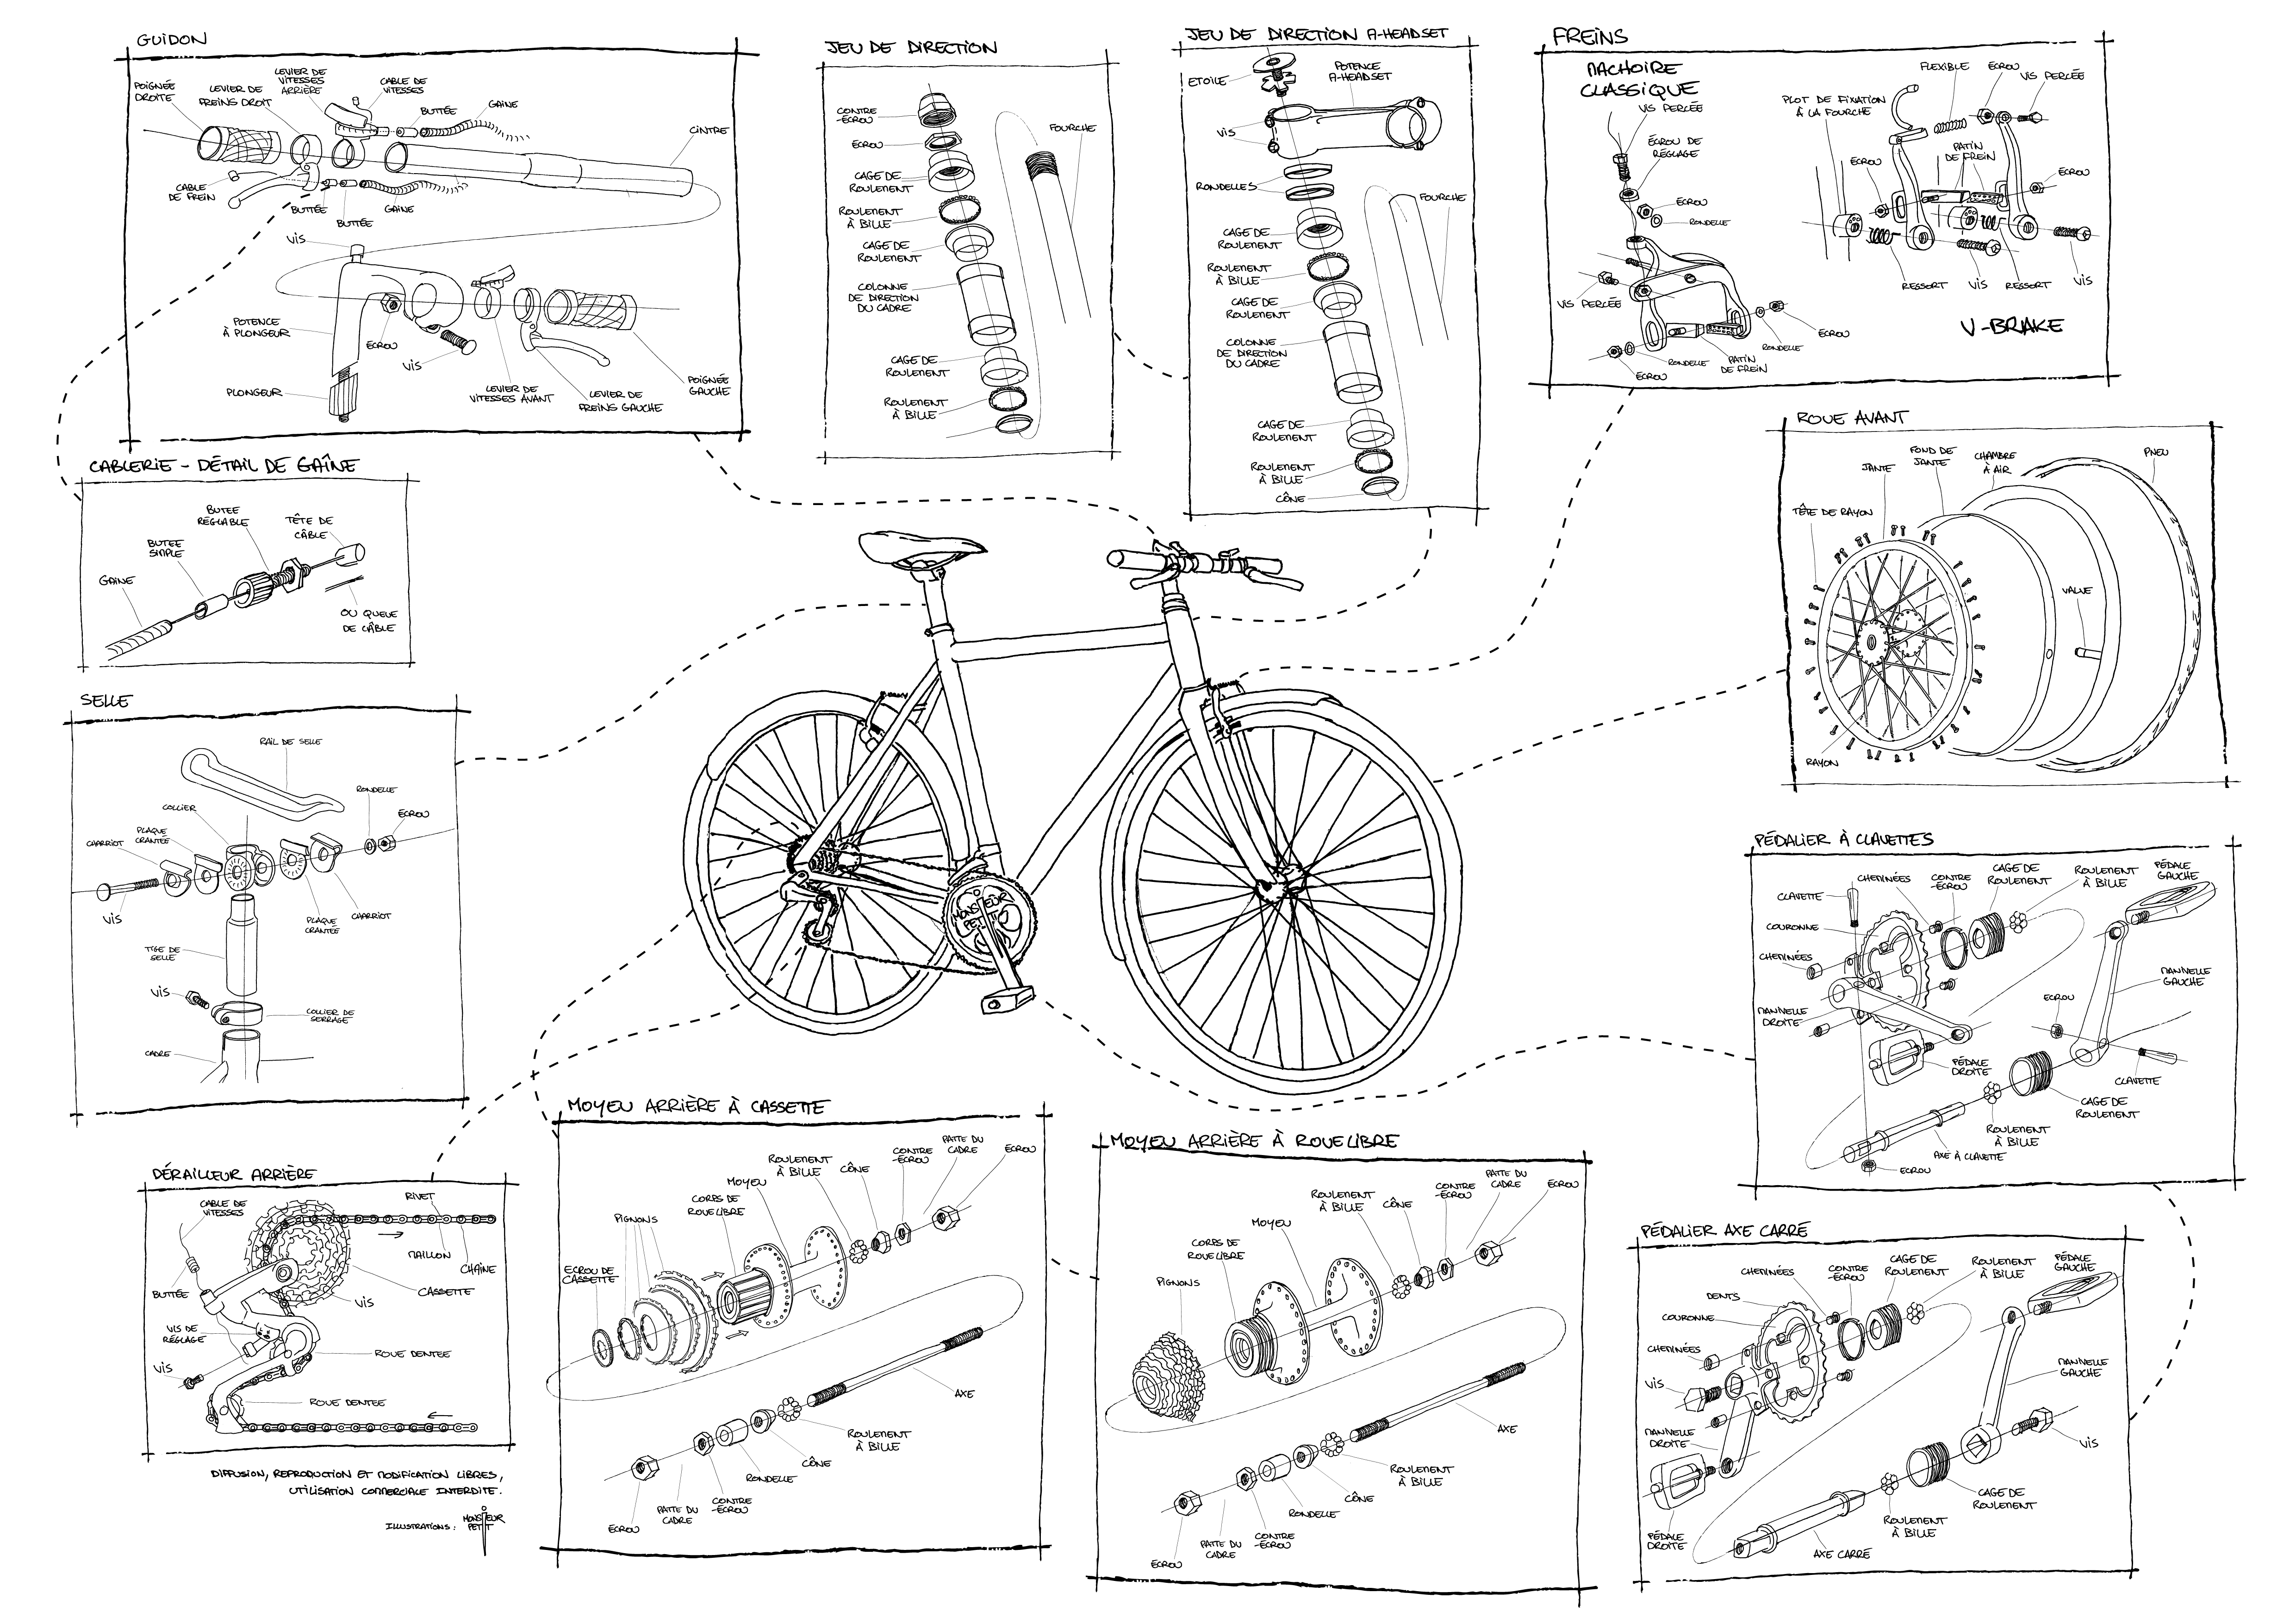 GUIDON
POIGNÉE
DROITE
LEVIER DE
FREINS DROIT
LEVIER DE
VITESSES
ARRIÈRE
CABLE DE
VITESSES
BUTTÉE
GAINE
CINTRE
CABLE
DE FREIN
BUTTÉE
BUTTÉE
GAINE
VIS
POTENCE
À PLONGEUR
ECROU
VIS
PLONGEUR
LEVIER DE
VITESSES AVANT
LEVIER DE
FREINS GAUCHE
POIGNÉE
GAUCHE
JEU DE DIRECTION
CONTRE
-ÉCROU
ECROU
CAGE DE
ROULEMENT
ROULEMENT
À BILLE
CAGE DE
ROULEMENT
COLONNE
DE DIRECTION
DU CADRE
CAGE DE
ROULEMENT
ROULEMENT
À BILLE
FOURCHE
JEU DE DIRECTION A-HEADSET
ETOILE
POTENCE
A-HEADSET
VIS
RONDELLES
CAGE DE
ROULEMENT
ROULEMENT
À BILLE
CAGE DE
ROULEMENT
COLONNE
DE DIRECTION
DU CADRE
CAGE DE
ROULEMENT
ROULEMENT
À BILLE
CÔNE
FOURCHE
FREINS
MACHOIRE
CLASSIQUE
VIS PERCÉE
ÉCROU DE
RÉGLAGE
ECROU
RONDELLE
VIS PERCÉE
ECROU
RONDELLE
PATIN
DE FREIN
RONDELLE
ECROU
PLOT DE FIXATION
À LA FOURCHE
FLEXIBLE
ECROU
VIS PERCÉE
ECROU
PATIN
DE FREIN
ECROU
RESSORT
VIS
RESSORT
VIS
V-BRAKE
CABLERIE - DÉTAIL DE GAÎNE
GAINE
BUTEE
SIMPLE
BUTEE
RÉGLABLE
TÊTE DE
CÂBLE
OU QUEUE
DE CÂBLE
ROUE AVANT
TÊTE DE RAYON
JANTE
FOND DE
JANTE
CHAMBRE
À AIR
PNEU
VALVE
RAYON
SELLE
RAIL DE SELLE
COLLIER
PLAQUE
CRANTÉE
CHARRIOT
RONDELLE
ECROU
VIS
PLAQUE
CRANTÉE
CHARRIOT
TIGE DE
SELLE
VIS
COLLIER DE
SERRAGE
CADRE
MONSIEUR
PETIT
PÉDALIER À CLAVETTES
CLAVETTE
CHEMINÉES
CONTRE
-ÉCROU
CAGE DE
ROULEMENT
ROULEMENT
À BILLE
PÉDALE
GAUCHE
COURONNE
CHEMINÉES
MANNELLE
DROITE
PÉDALE
DROITE
ECROU
MANNELLE
GAUCHE
CLAVETTE
CAGE DE
ROULEMENT
ROULEMENT
À BILLE
AXE À CLAVETTE
ECROU
DÉRAILLEUR ARRIÈRE
CABLE DE
VITESSES
RIVET
MAILLON
CHAÎNE
CASSETTE
VIS
BUTTÉE
VIS DE
RÉGLAGE
VIS
ROUE DENTEE
ROUE DENTEE
MOYEU ARRIÈRE À CASSETTE
ECROU DE
CASSETTE
PIGNONS
CORPS DE
ROUE LIBRE
MOYEU
ROULEMENT
À BILLE
CÔNE
CONTRE
-ÉCROU
PATTE DU
CADRE
ECROU
AXE
ROULEMENT
À BILLE
CÔNE
RONDELLE
CONTRE
-ÉCROU
PATTE DU
CADRE
ECROU
MOYEU ARRIÈRE À ROUE LIBRE
PIGNONS
CORPS DE
ROUE LIBRE
MOYEU
ROULEMENT
À BILLE
CÔNE
CONTRE
-ÉCROU
PATTE DU
CADRE
ECROU
AXE
ROULEMENT
À BILLE
CÔNE
RONDELLE
CONTRE
-ÉCROU
PATTE DU
CADRE
ECROU
PÉDALIER AXE CARRÉ
CHEMINÉES
CONTRE
-ÉCROU
CAGE DE
ROULEMENT
ROULEMENT
À BILLE
PÉDALE
GAUCHE
DENTS
COURONNE
CHEMINÉES
VIS
MANNELLE
DROITE
PÉDALE
DROITE
MANNELLE
GAUCHE
VIS
CAGE DE
ROULEMENT
ROULEMENT
À BILLE
AXE CARRÉ
DIFFUSION, REPRODUCTION ET MODIFICATION LIBRES,
UTILISATION COMMERCIALE INTERDITE.
ILLUSTRATIONS : MONSIEUR
PETIT